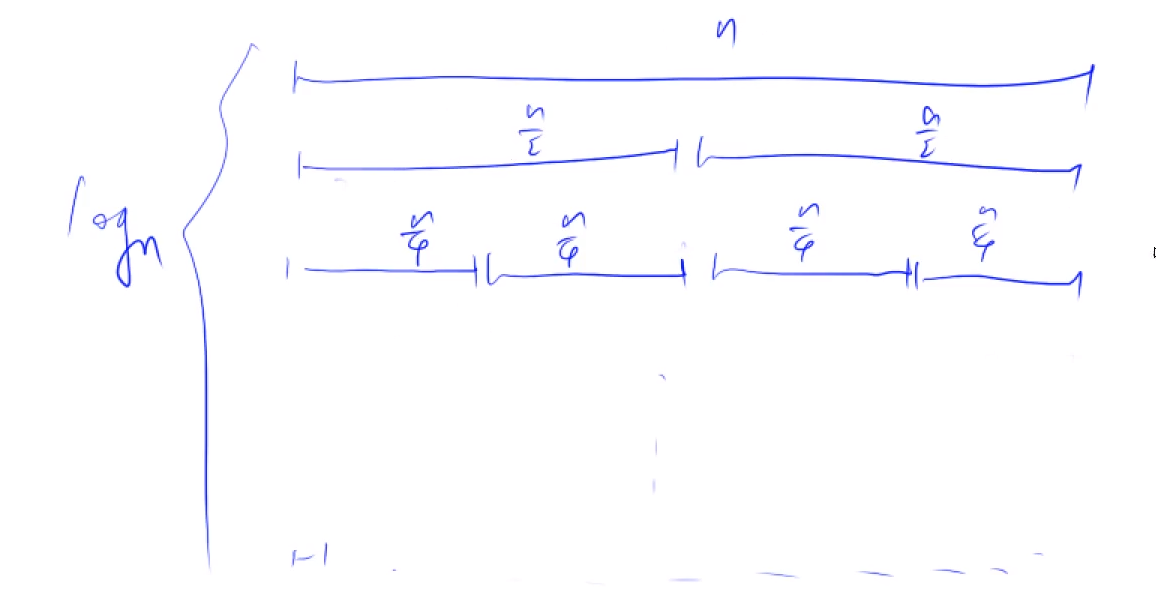 n
n/2 n/2
log n
n/4 n/4 n/4 n/4